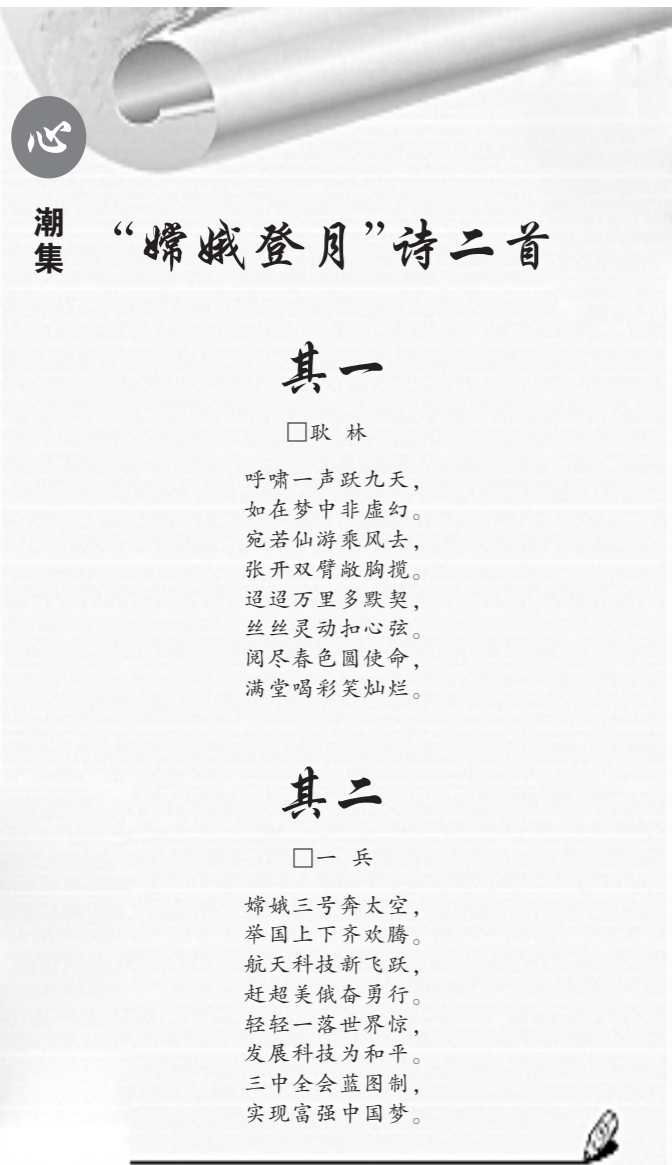 心
潮
集
“嫦娥登月”诗二首
其一
□耿 林
呼啸一声跃九天，
如在梦中非虚幻。
宛若仙游乘风去，
张开双臂敞胸揽。
迢迢万里多默契，
丝丝灵动扣心弦。
阅尽春色圆使命，
满堂喝彩笑灿烂。
其二
□一 兵
嫦娥三号奔太空，
举国上下齐欢腾。
航天科技新飞跃，
赶超美俄奋勇行。
轻轻一落世界惊，
发展科技为和平。
三中全会蓝图制，
实现富强中国梦。